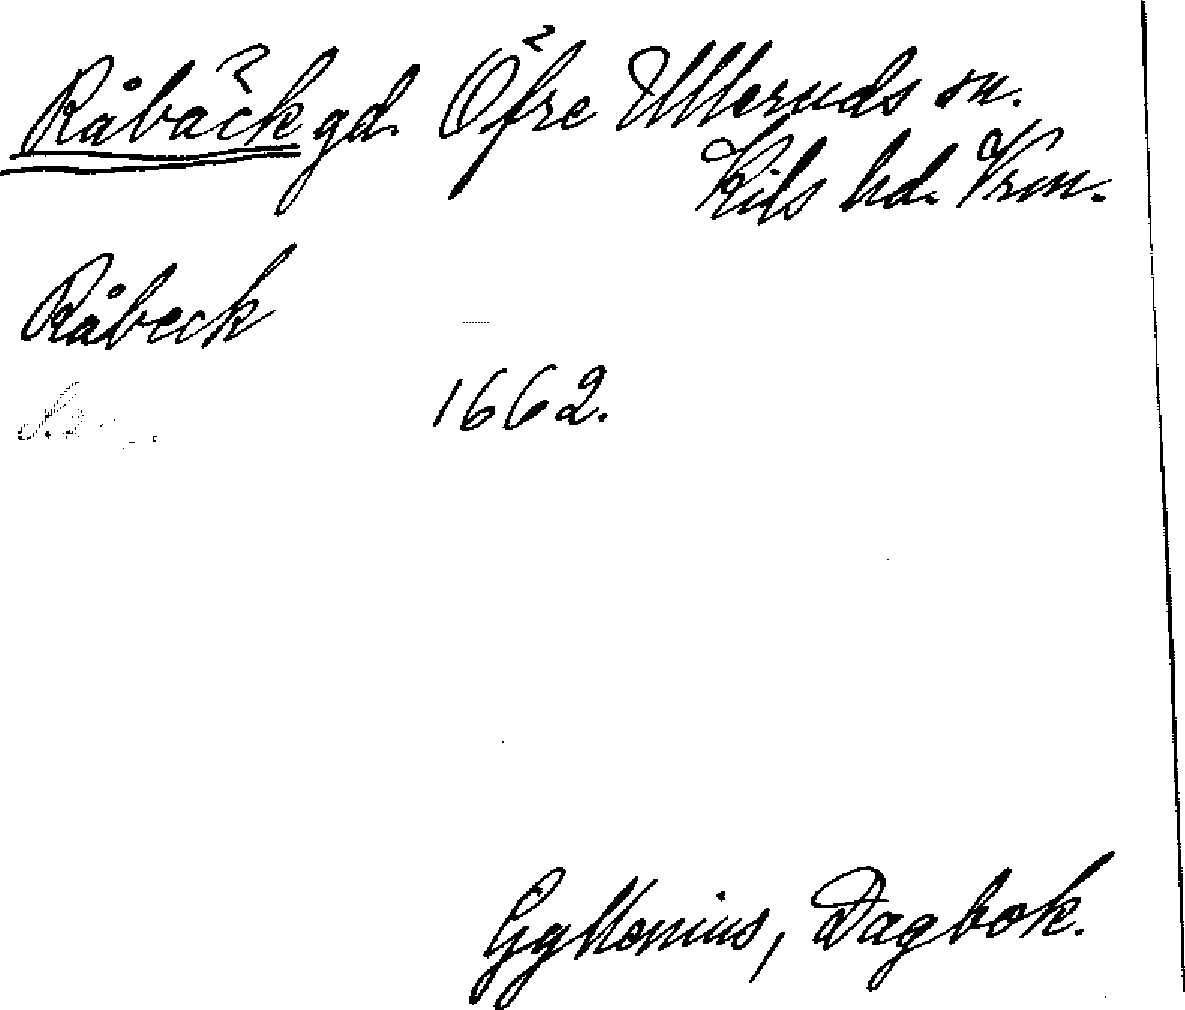 Råbäck gd. Öfre Ulleruds sn.
Kils hd. Vrm.
Råbeck
1662.
Gyllenius, Dagbok.